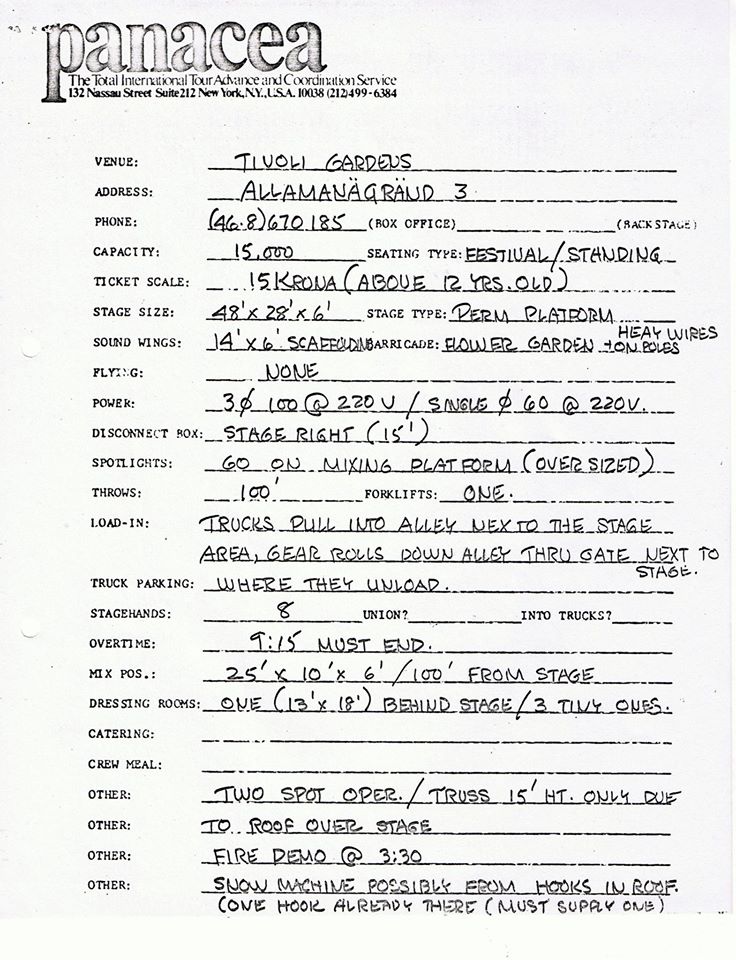 panacea
The Total International Tour Advance and Coordination Service
132 Nassau Street Suite 212 New York, N.Y., U.S.A. 10038 (212) 499-6384
VENUE: TIVOLI GARDENS
ADDRESS: ALLAMANÄGRÄND 3
PHONE: (46.8)670185 (BOX OFFICE) (BACKSTAGE)
CAPACITY: 15,000 SEATING TYPE: FESTIVAL/STANDING
TICKET SCALE: 15 KRONA (ABOVE 12 YRS. OLD)
STAGE SIZE: 48' X 28' X 6' STAGE TYPE: PERM PLATFORM
SOUND WINGS: 14' X 6' SCAFFOLDING BARRICADE: FLOWER GARDEN + HEAY WIRES ON POLES
FLYING: NONE
POWER: 3ø 100 @ 220 V / SINGLE ø 60 @ 220V.
DISCONNECT BOX: STAGE RIGHT (15')
SPOTLIGHTS: GO ON MIXING PLATFORM (OVER SIZED)
THROWS: 100' FORKLIFTS: ONE.
LOAD-IN: TRUCKS PULL INTO ALLEY NEX TO THE STAGE
AREA, GEAR ROLLS DOWN ALLEY THRU GATE NEXT TO
STAGE.
TRUCK PARKING: WHERE THEY UNLOAD.
STAGEHANDS: 8 UNION? INTO TRUCKS?
OVERTIME: 9:15 MUST END.
MIX POS.: 25' X 10' X 6' / 100' FROM STAGE
DRESSING ROOMS: ONE (13' X 18') BEHIND STAGE / 3 TINY ONES.
CATERING:
CREW MEAL:
OTHER: TWO SPOT OPER. / TRUSS 15' HT. ONLY DUE
OTHER: TO ROOF OVER STAGE
OTHER: FIRE DEMO @ 3:30
OTHER: SNOW MACHINE POSSIBLY FROM HOOKS IN ROOF.
(ONE HOOK ALREADY THERE (MUST SUPPLY ONE)